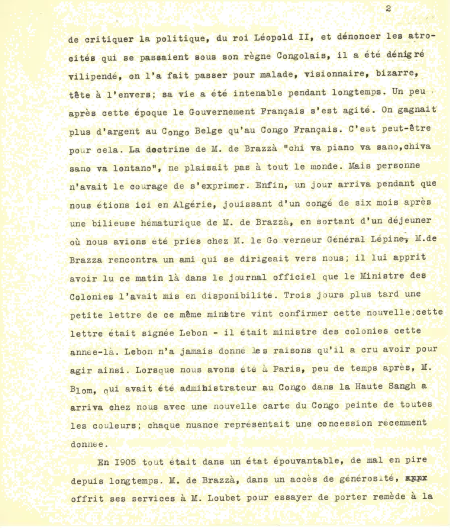 2
de critiquer la politique, du roi Léopold II, et dénoncer les atro-
cités qui se passaient sous son règne Congolais, il a été dénigré
vilipendé, on l'a fait passer pour malade, visionnaire, bizarre,
tête à l'envers; sa vie a été intenable pendant longtemps. Un peu
après cette époque le Gouvernement Français s'est agité. On gagnait
plus d'argent au Congo Belge qu'au Congo Français. C'est peut-être
pour cela. La doctrine de M. de Brazzà "chi va piano va sano,chiva
sano va lontano", ne plaisait pas à tout le monde. Mais personne
n'avait le courage de s'exprimer. Enfin, un jour arriva pendant que
nous étions ici en Algérie, jouissant d'un congé de six mois après
une bilieuse hématurique de M. de Brazzà, en sortant d'un déjeuner
où nous avions été priés chez M. le Go verneur Général Lépine, M.de
Brazza rencontra un ami qui se dirigeait vers nous; il lui apprit
avoir lu ce matin là dans le journal officiel que le Ministre des
Colonies l'avait mis en disponibilité. Trois jours plus tard une
petite lettre de ce même ministre vint confirmer cette nouvelle;cette
lettre était signée Lebon - il était ministre des colonies cette
année-là. Lebon n'a jamais donné les raisons qu'il a cru avoir pour
agir ainsi. Lorsque nous avons été à Paris, peu de temps après, M.
Blom, qui avait été administrateur au Congo dans la Haute Sangh a
arriva chez nous avec une nouvelle carte du Congo peinte de toutes
les couleurs; chaque nuance représentait une concession récemment
donnée.
En 1905 tout était dans un état épouvantable, de mal en pire
depuis longtemps. M. de Brazzà, dans un accès de générosité,
offrit ses services à M. Loubet pour essayer de porter remède à la